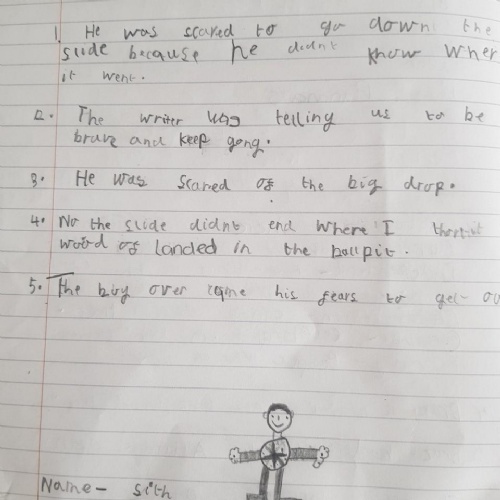 1. He was scared to go down the
slide because he didnt know wher
it went.
2. The writer was telling us to be
brave and keep gong.
3. He was scared of the big drop.
4. No the slide didnt end where I
woud of landed in the ballpit.
5. The boy over came his fears to get ou
Name - seth